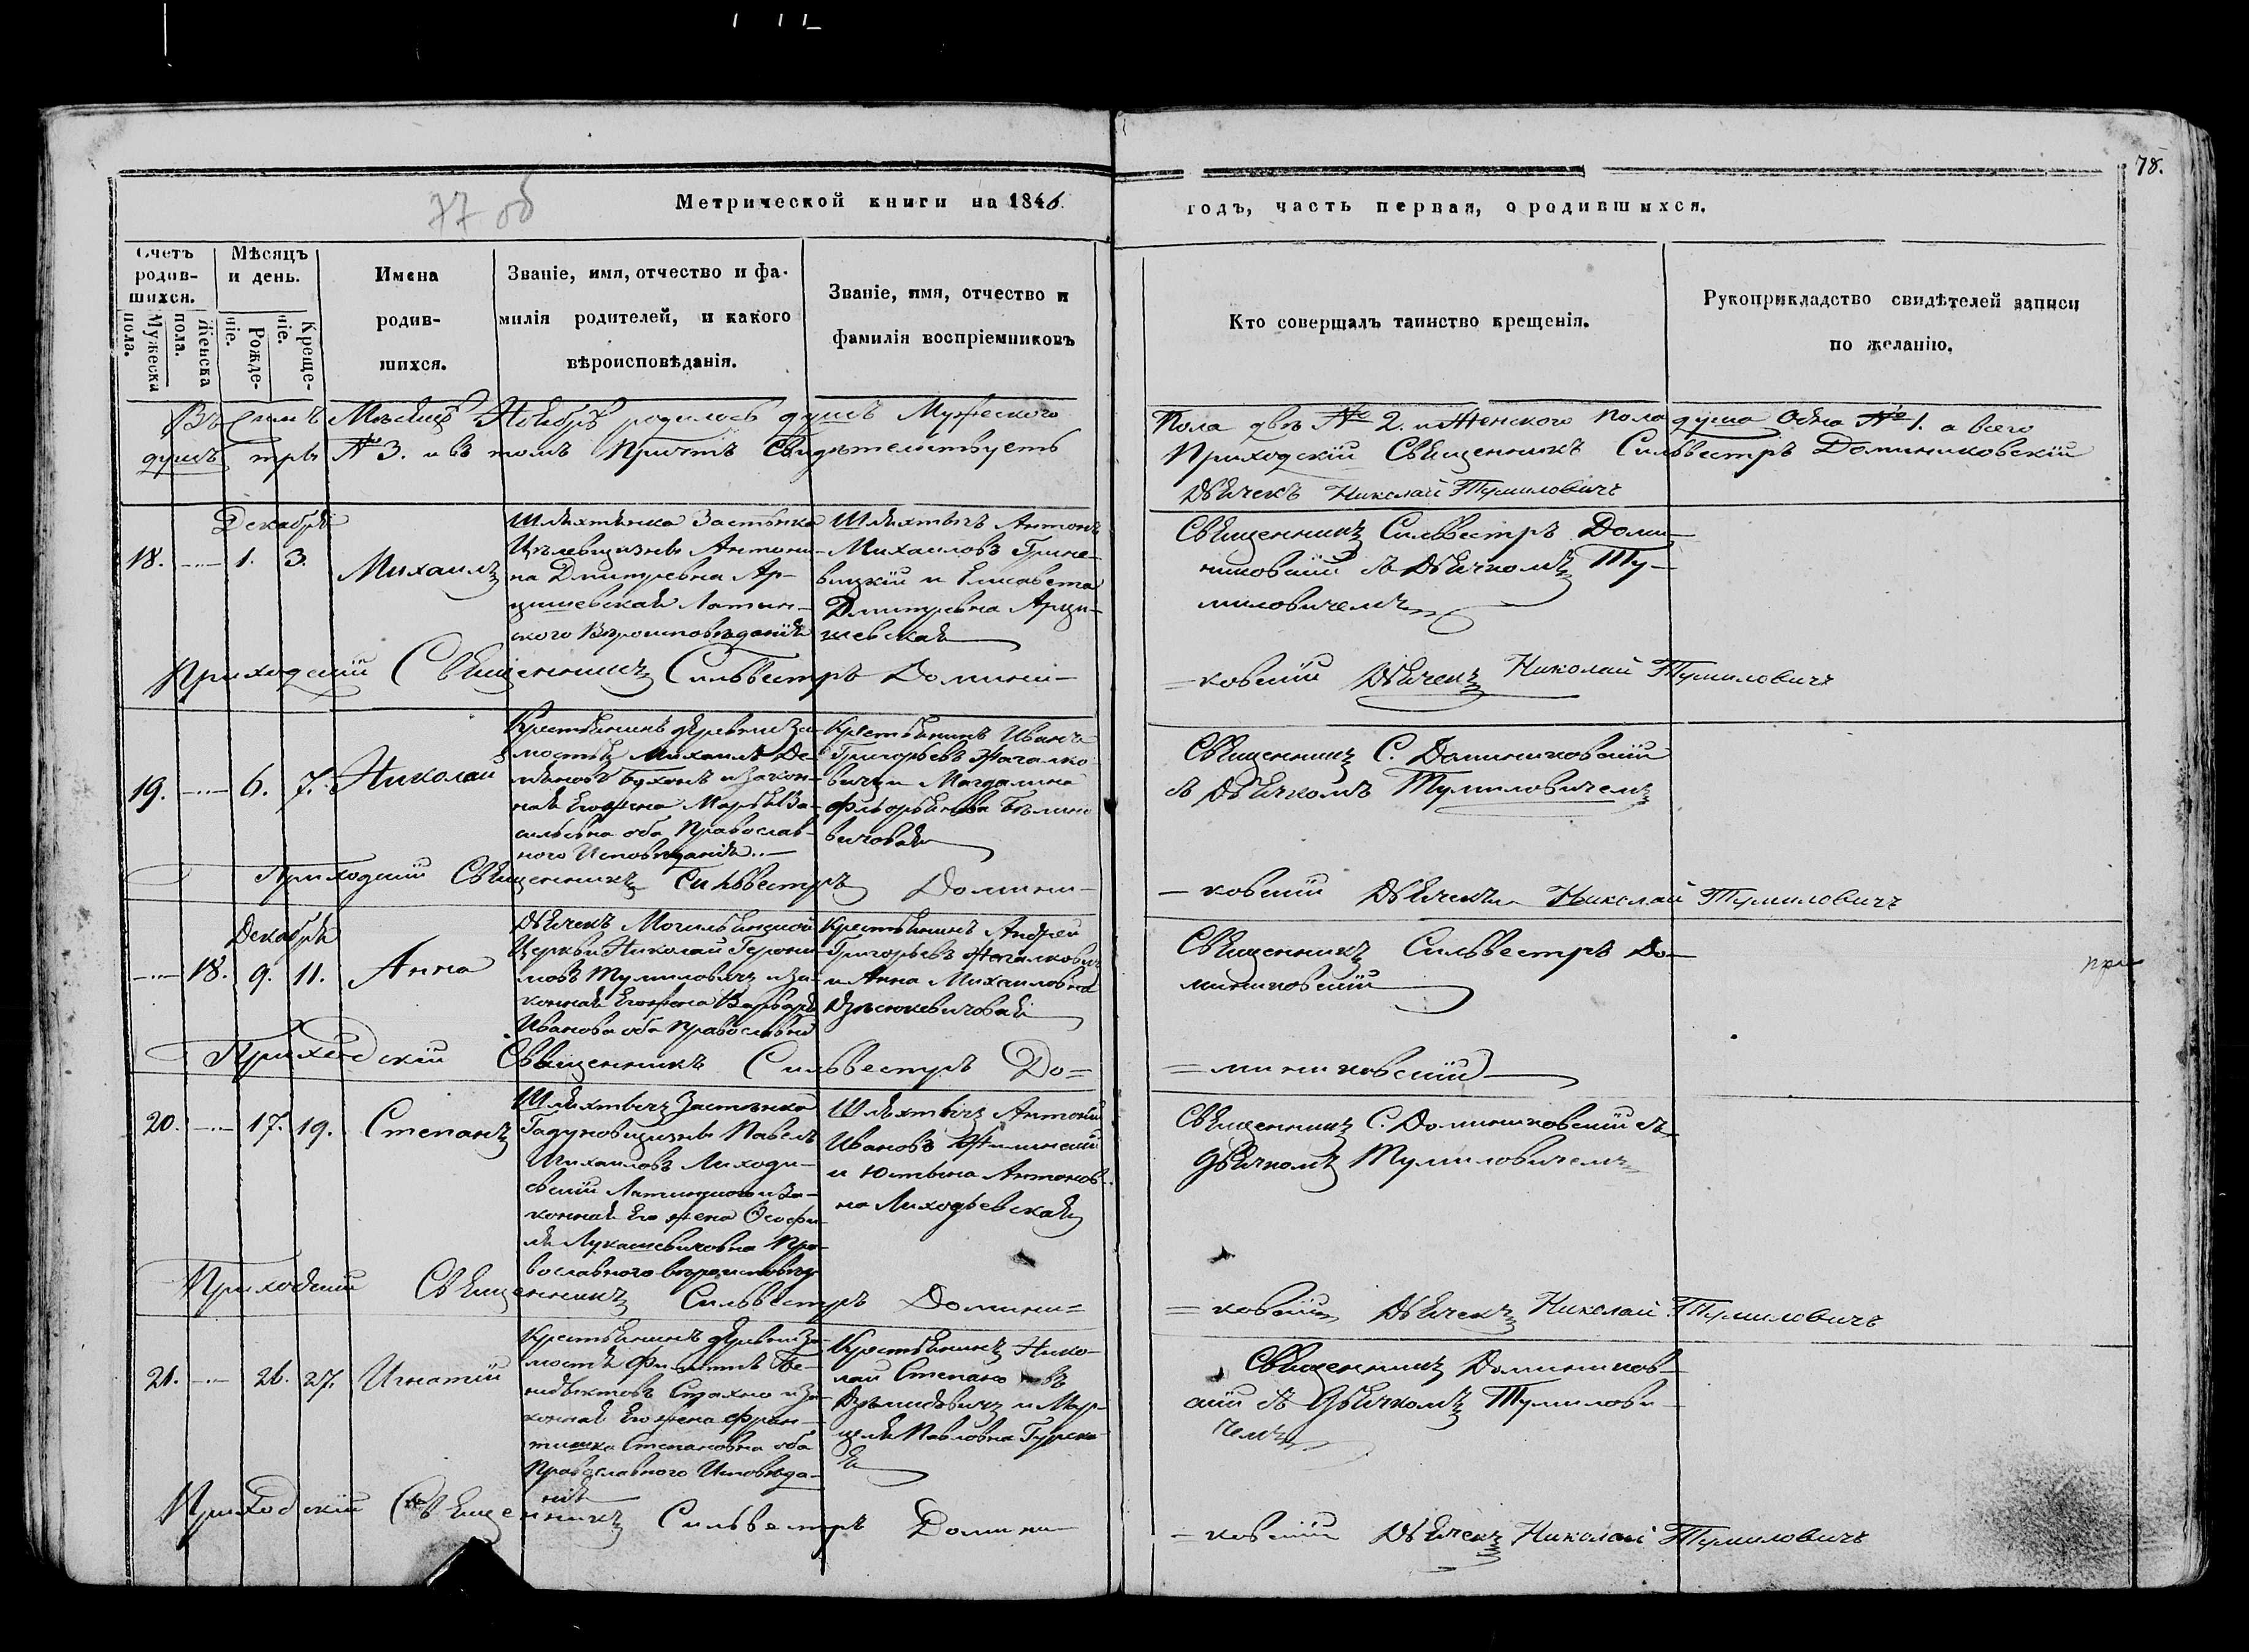 78.
77 об
Метрической книги на 1846.
годъ, часть первая, о родившихся.
Счетъ родив-шихся.
Мужеска пола.
Женска пола.
Мѣсяцъ и день.
Рожде-ніе.
Креще-ніе.
Имена
родив-
шихся.
Званіе, имя, отчество и фа-
милія родителей, и какого
вѣроисповѣданія.
Званіе, имя, отчество и
фамилія воспріемниковъ
Кто совершалъ таинство крещенія.
Рукоприкладство свидѣтелей записи
по желанію.
Въ симъ Мѣсяцѣ Ноябрѣ родилось душъ Мужеского
Пола двѣ № 2. и Женского Пола душа Одна № 1. а всего
душъ три № 3. и въ томъ Причтъ Свидѣтельствуетъ
Приходскій Священникъ Сильвестръ Доминиковскій
Дьячекъ Николай Тумиловичъ
Декабря
18. 1. 3. Михаилъ
Шляхтянка Застѣнка
Антони-
на Дмитревна Ар-
цишевская Латин-
ского Вѣроисповѣданія
Шляхтичъ Антонъ
Михаиловъ Грине-
вицкій и Елисавета
Дмитревна Арци-
шевская
Священникъ Сильвестръ Доми-
никовскій съ Дьячкомъ Ту-
миловичемъ
Приходскій Священникъ Сильвестръ Домини-
ковскій Дьячекъ Николай Тумиловичъ
19. 6. 7. Николай
Крестьянинъ деревни За-
мостья Михаилъ Де-
мьяновъ Буханъ и закон-
ная Его жена Марья Ва-
сильевна оба Православ-
ного Исповѣданія
Крестьянинъ Иванъ
Григорьевъ Жагалко-
вичъ и Магдалина
вичовая
Священникъ С. Доминиковскій
съ Дьячкомъ Тумиловичемъ
Приходскій Священникъ Сильвестръ Домини-
ковскій Дьячекъ Николай Тумиловичъ
Декабря
18. 9. 11. Анна
Дьячекъ Могильянской
Церкви Николай Герони-
мовъ Тумиловичъ и За-
конная Его жена Варвара
Иванова оба Православны
Крестьянинъ Андрей
Григорьевъ Жагалкович
и Анна Михаиловна
Дзѣсюкевичовая
Священникъ Сильвестръ До-
миниковскій
Приходскій Священникъ Сильвестръ До=
=миниковскій
20. 17. 19. Степанъ
Шляхтичъ Застѣнка
Гадуновщизны Павелъ
Михаиловъ Лиходи-
евскій Латинского и За-
конная Его жена Ѳеофи-
ля Лукашевичовна Пра-
вославного вѣроисповѣд
Шляхтичъ Антоній
Ивановъ Жилинскій
и Юстына Антонов-
на Лиходьевская
Священникъ С. Доминиковскій съ
дьячкомъ Тумиловичемъ
Приходскій Священникъ Сильвестръ Домини=
=ковскій Дьячекъ Николай Тумиловичъ
21. 26. 27. Игнатій
Крестьянинъ деревни За-
мостья Филиппъ Бе-
недыктовъ Страхно и За-
конная Его жена Фран-
тишка Степановна оба
Православного Исповѣда-
нія
Крестьянинъ Нико-
лай Степановъ
и Мар-
целя Павловна Гурска-
я
Священникъ Домиников-
скій съ Дьячкомъ Тумилови-
чемъ
Приходскій Священникъ Сильвестръ Домини-
=ковскій Дьячекъ Николай Тумиловичъ